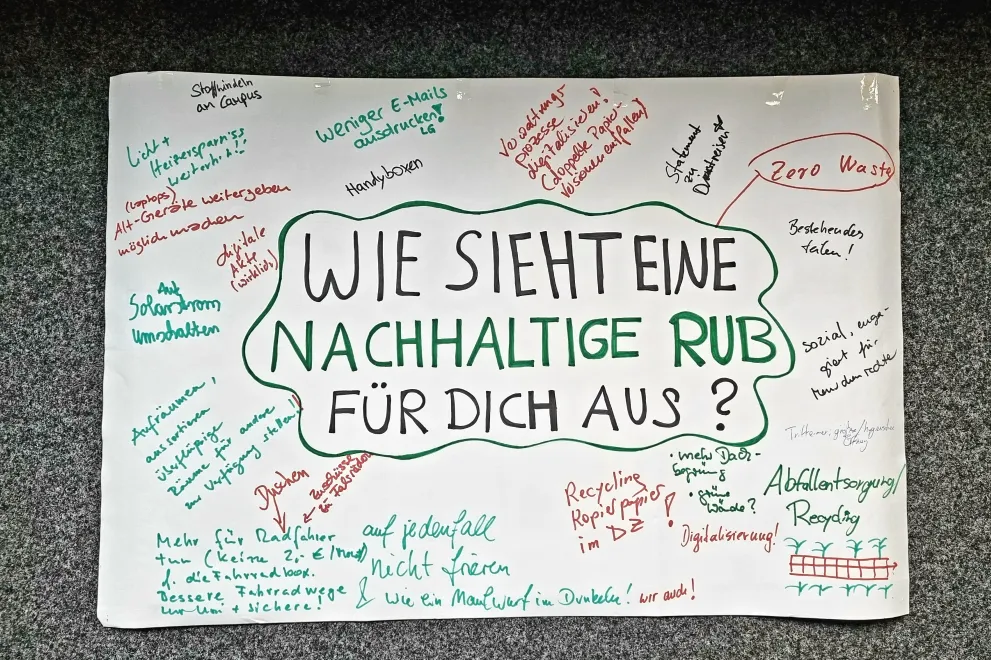 Stoffwindeln
an Campus
Licht +
Heizersparniss
weiterhin!!
weniger E-Mails
ausdrucken!
LG
Handyboxen
Verwaltungs-
prozesse
digitalisieren!
(doppelte Papier-
versionen entfallen)
Statement
zu
Dienstreisen
Zero Waste
(Laptops)
Alt-Geräte weitergeben
möglich machen
digitale
Akte
(wirklich)
Bestehendes
teilen!
Auf
Solarstrom
umschalten
WIE SIEHT EINE
NACHHALTIGE RUB
FÜR DICH AUS?
sozial, enga-
giert für
Menschenrechte
Aufräumen,
aussortieren
überflüssige
Räume für andere
zur Verfügung stellen!
Duschen
Zuschüsse
zu
mehr Dach-
begrünung
grüne
Wände?
Recycling
Kopierpapier
im DZ!
Digitalisierung!
Abfallentsorgung/
Recycling
Mehr für Radfahrer
tun (keine 2,- €/Monat)
f. die Fahrradbox.
Bessere Fahrradwege
zur Uni + sichere!
auf jedenfall
nicht frieren
& wie ein Maulwurf im Dunkeln! wir auch!